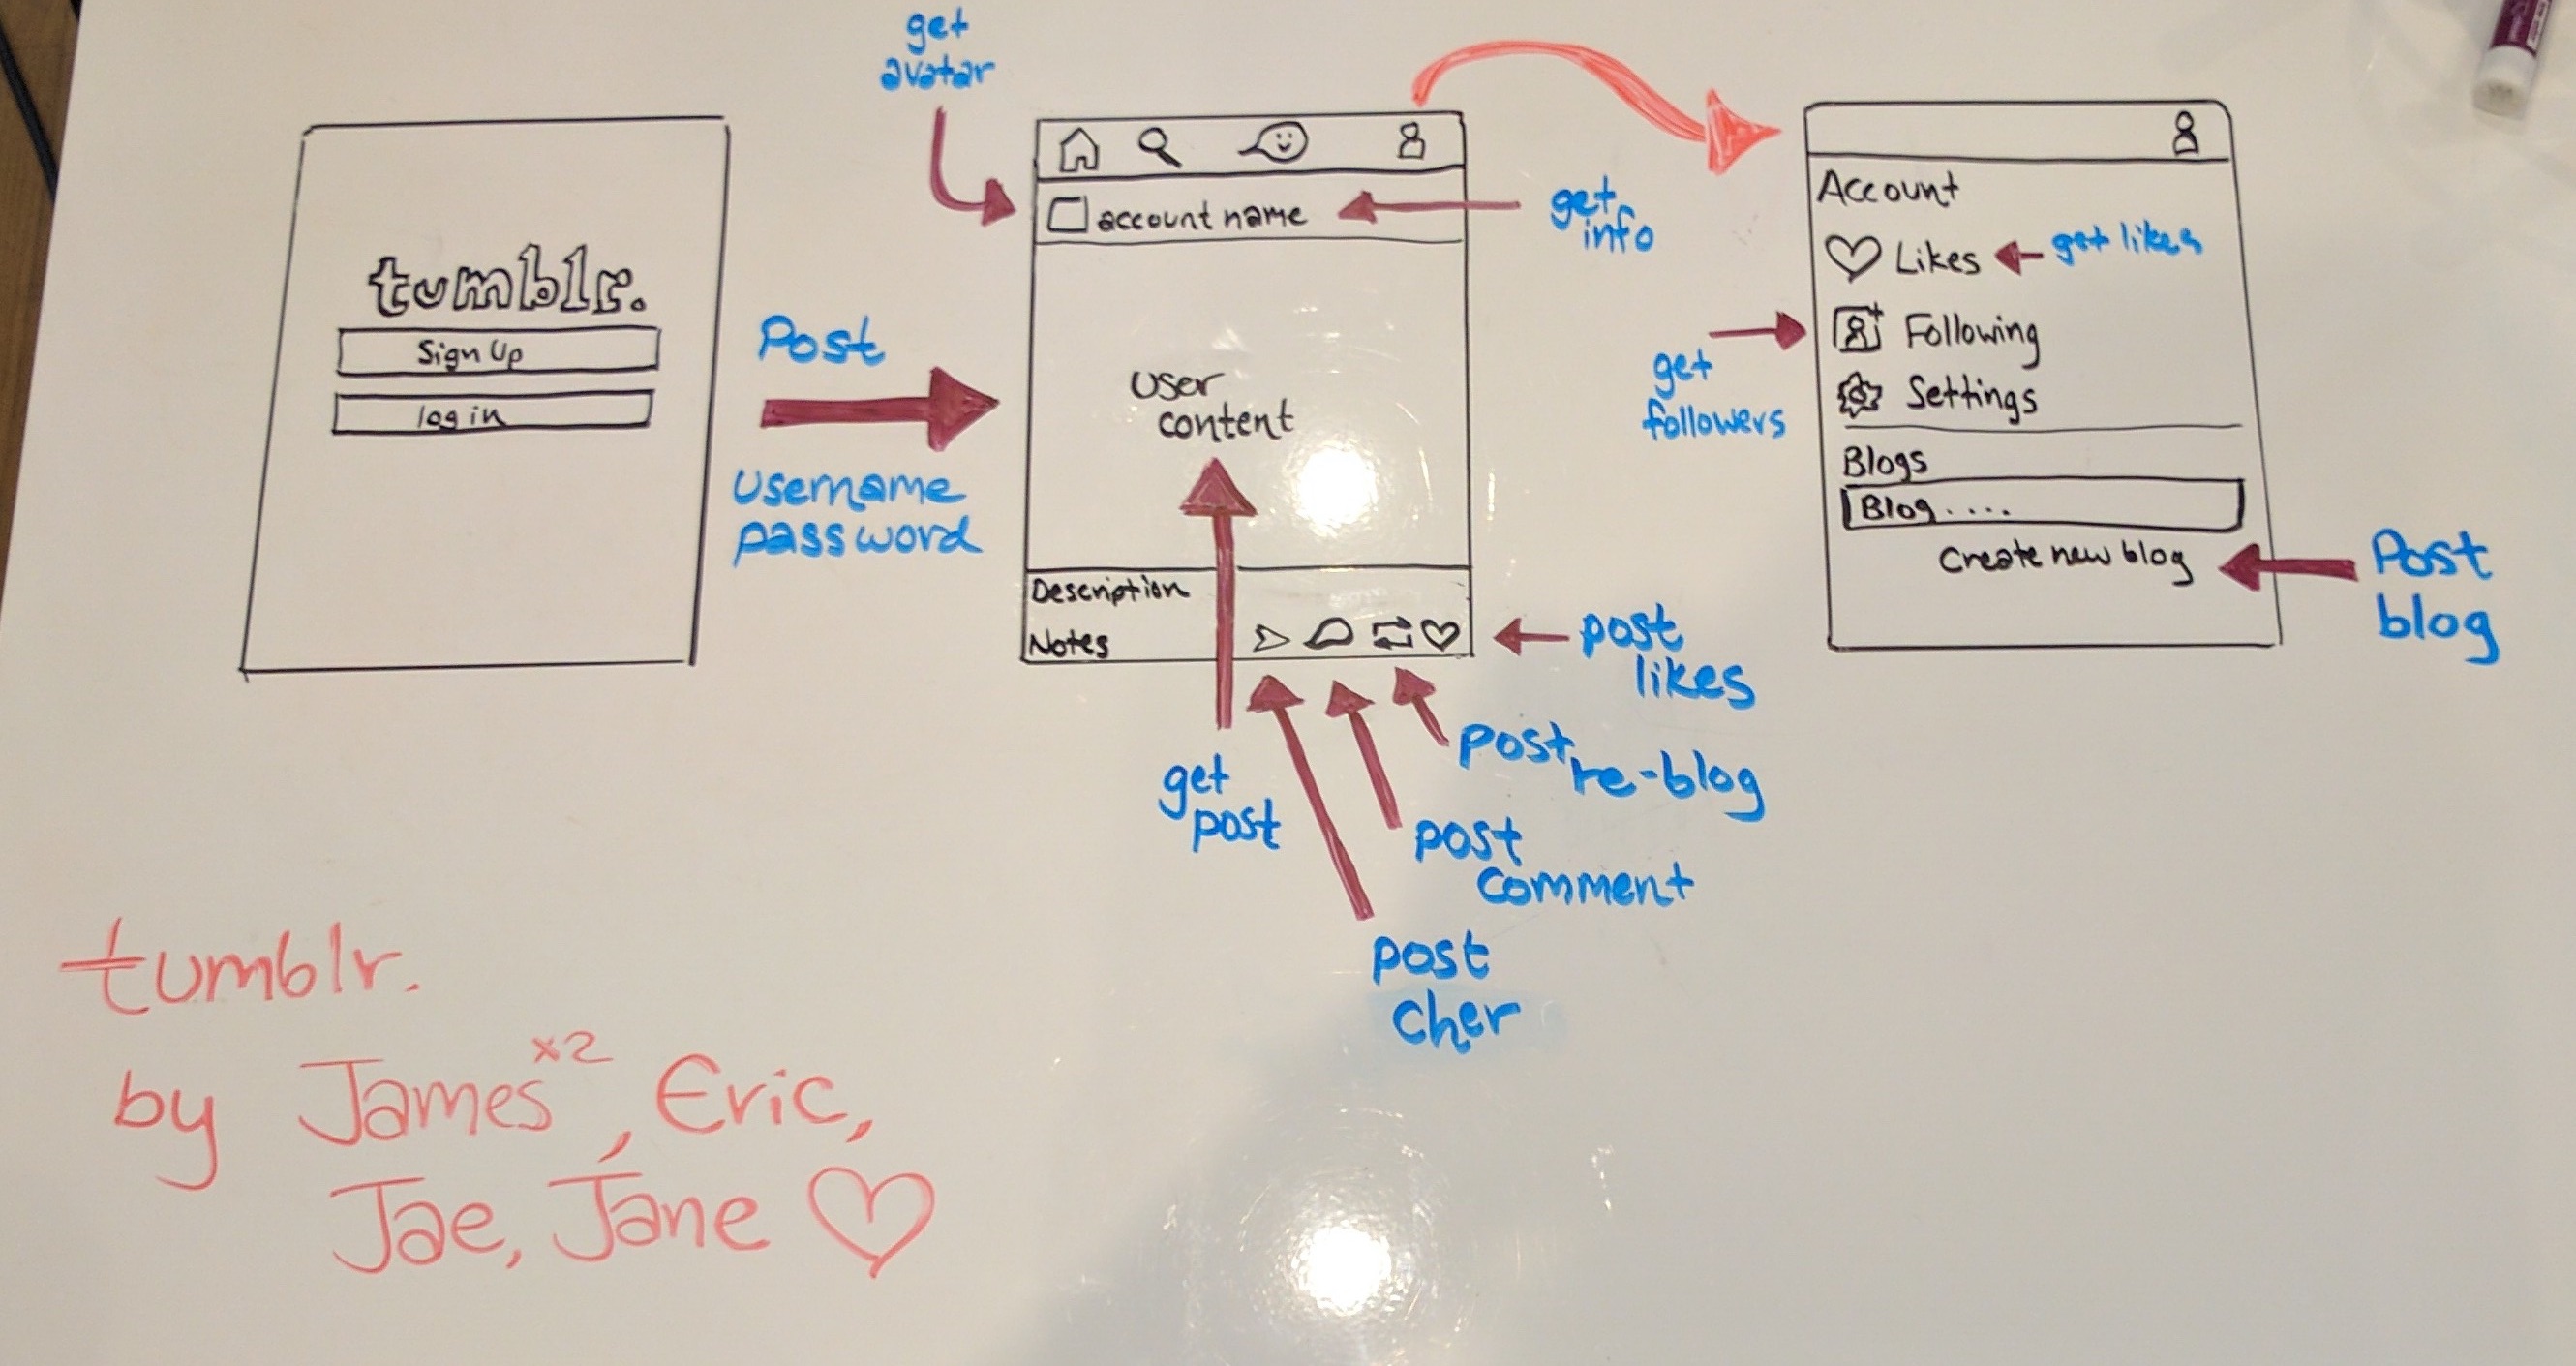 tumblr.
Sign Up
log in
Post
Username
password
get
avatar
account name
get
info
user
content
Description
Notes
get
post
post
likes
post
re-blog
post
comment
post
cher
Account
Likes
get likes
Following
get
followers
Settings
Blogs
Blog....
Create new blog
Post
blog
tumblr.
by James x2, Eric,
Jae, Jane